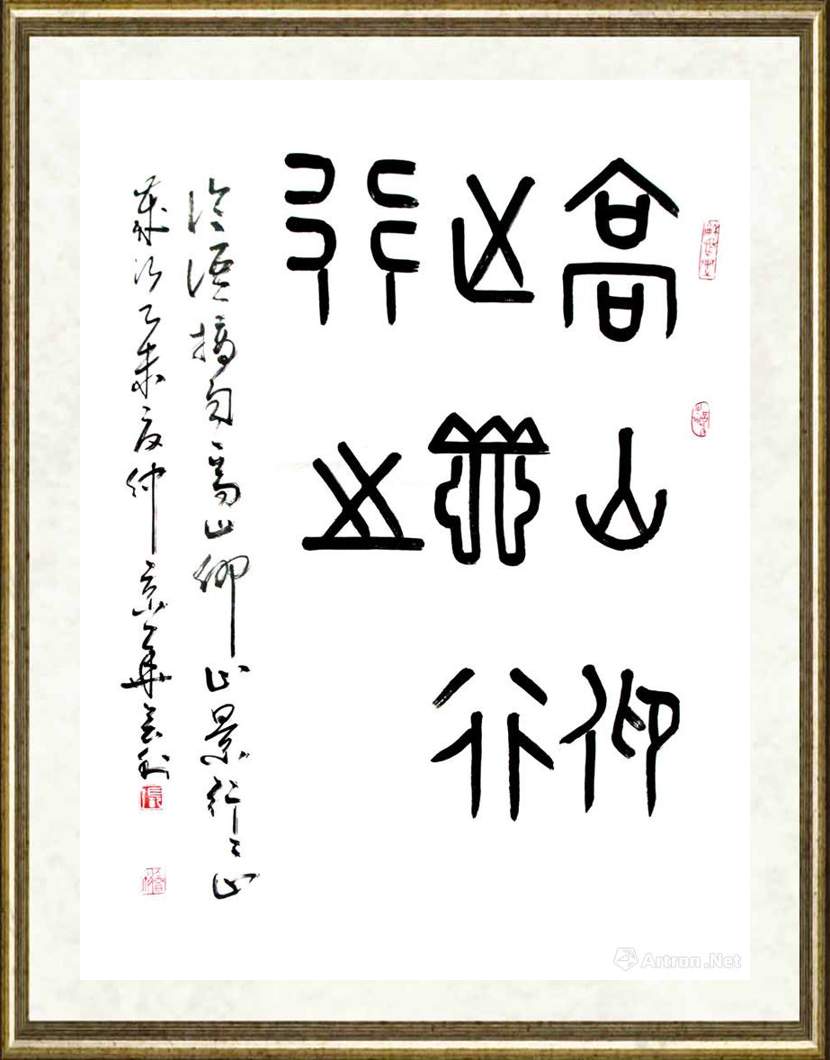 高山仰
止景行
行止
論語摘句高山仰止景行〻止
歲次乙未夏仲京華
Artron.Net